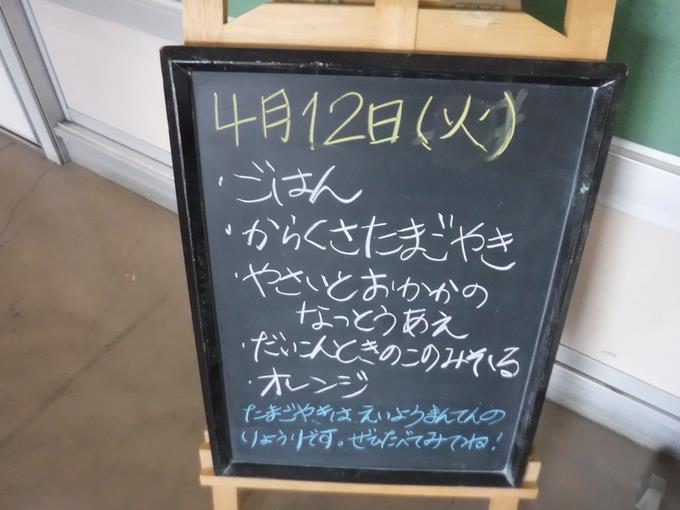 4月12日(火)
・ごはん
・からくさたまごやき
・やさいとおかかの
なっとうあえ
・だいこんときのこのみそしる
・オレンジ
たまごやきは、えいようまんてんの
りょうりです。ぜひたべてみてね!